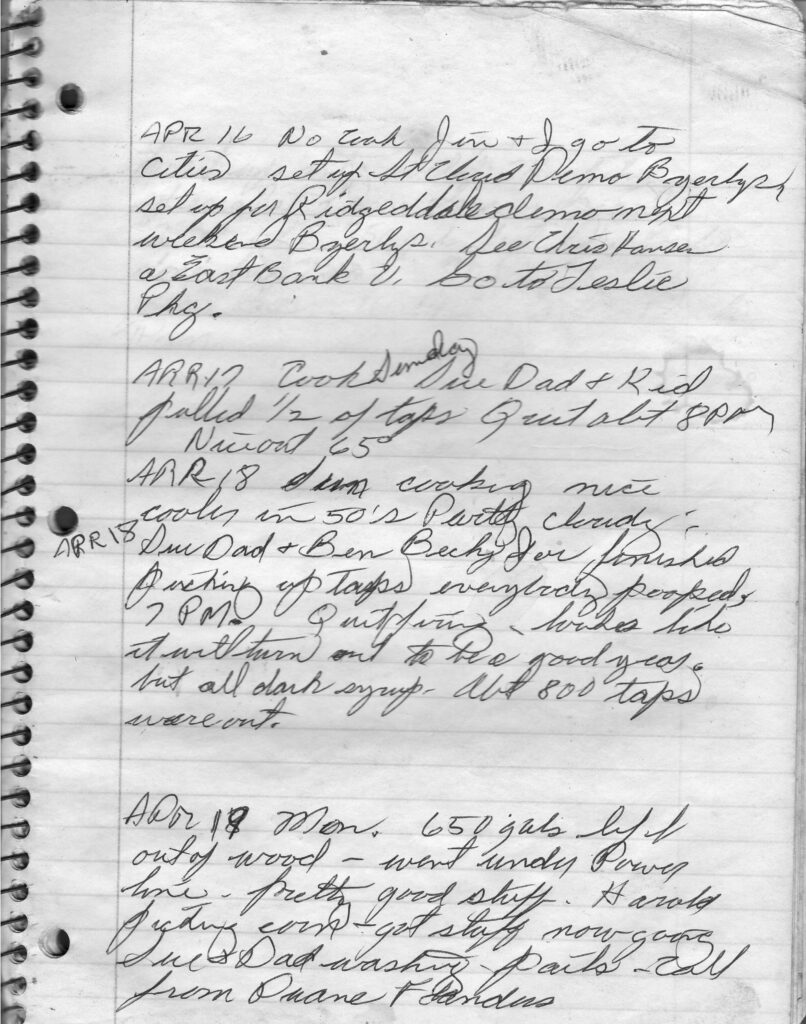 APR 16 No cook Jim + I go to
Cities set up St Cloud Demo Byerlys,
set up for Ridgeddale demo next
weekend Byerlys. See Chris Hansen
a East Bank U. Go to Leslie
Pkg.
APR 17 Cook Sunday Sue Dad + Kid
pulled 1/2 of taps Quit abt 8 PM
Nice out 65°
APR 18 Sun cooking nice
cooler in 50's Partly cloudy -
APR 18
Sue Dad + Ben Becky Joe finished
picking up taps everybody pooped,
7 PM. Quit firing - looks like
it will turn out to be a good year,
but all dark syrup. Abt 800 taps
were out.
APR 18 Mon. 650 gals left
out of wood - went under Power
line - pretty good stuff. Harold
picking corn - got stuff now going
Sue & Dad washing pails - Call
from Duane Flanders